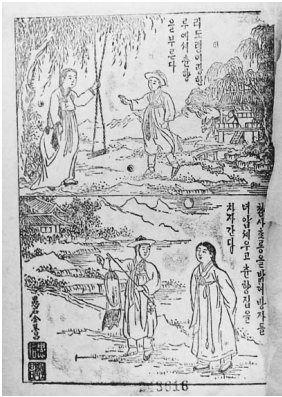 리도령이광한
루에서춘향
을부른다
청사초롱을밝혀방자를
압세우고춘향집을
차자간다